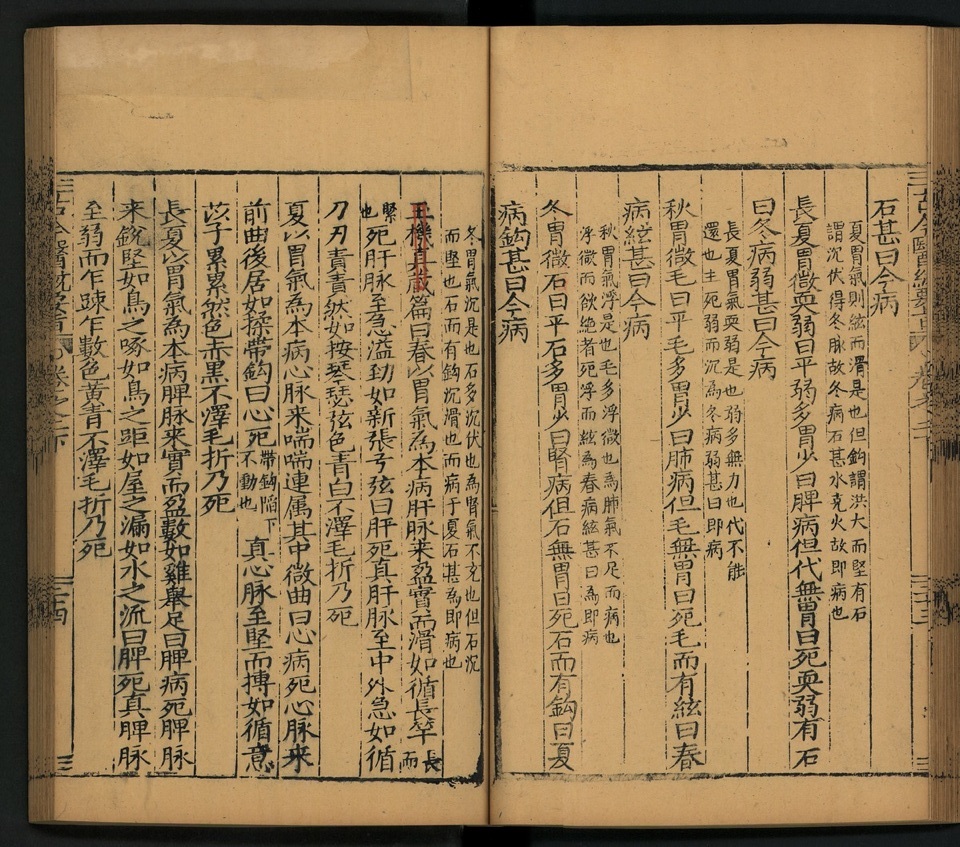 石甚曰今病
夏胃氣則絃而滑是也但鈎謂洪大而堅有石
謂沉伏得冬脉故冬病石甚水克火故即病也
長夏胃微耎弱曰平弱多胃少曰脾病但代無胃曰死耎弱有石
曰冬病弱甚曰今病
長夏胃氣耎弱是也弱多無力也代不能
還也主死弱而沉為冬病弱甚曰即病
秋胃微毛曰平毛多胃少曰肺病但毛無胃曰死毛而有絃曰春
病絃甚曰今病
秋胃氣浮是也毛多浮微也為肺氣不足而病也
浮微而欲絶者死浮而絃為春病絃甚曰為即病
冬胃微石曰平石多胃少曰腎病但石無胃曰死石而有鈎曰夏
病鈎甚曰今病
冬胃氣沉是也石多沉伏也為腎氣不充也但石沉
而堅也石而有鈎沉滑也而病于夏石甚為即病也
玉機真藏篇曰春以胃氣為本病肝脉来盈實而滑如循長竿長而
緊也死肝脉至急溢劲如新張弓弦曰肝死真肝脉至中外急如循
刀刃責責然如按琴瑟弦色青白不澤毛折乃死
夏以胃氣為本病心脉来喘喘連属其中微曲曰心病死心脉来
前曲後居如操帶鈎曰心死帶鈎陷下不動也真心脉至堅而搏如循薏
苡子累累然色赤黑不澤毛折乃死
長夏以胃氣為本病脾脉来實而盈數如雞舉足曰脾病死脾脉
来銳堅如烏之啄如鳥之距如屋之漏如水之流曰脾死真脾脉
至弱而乍踈乍數色黄青不澤毛折乃死
二十四